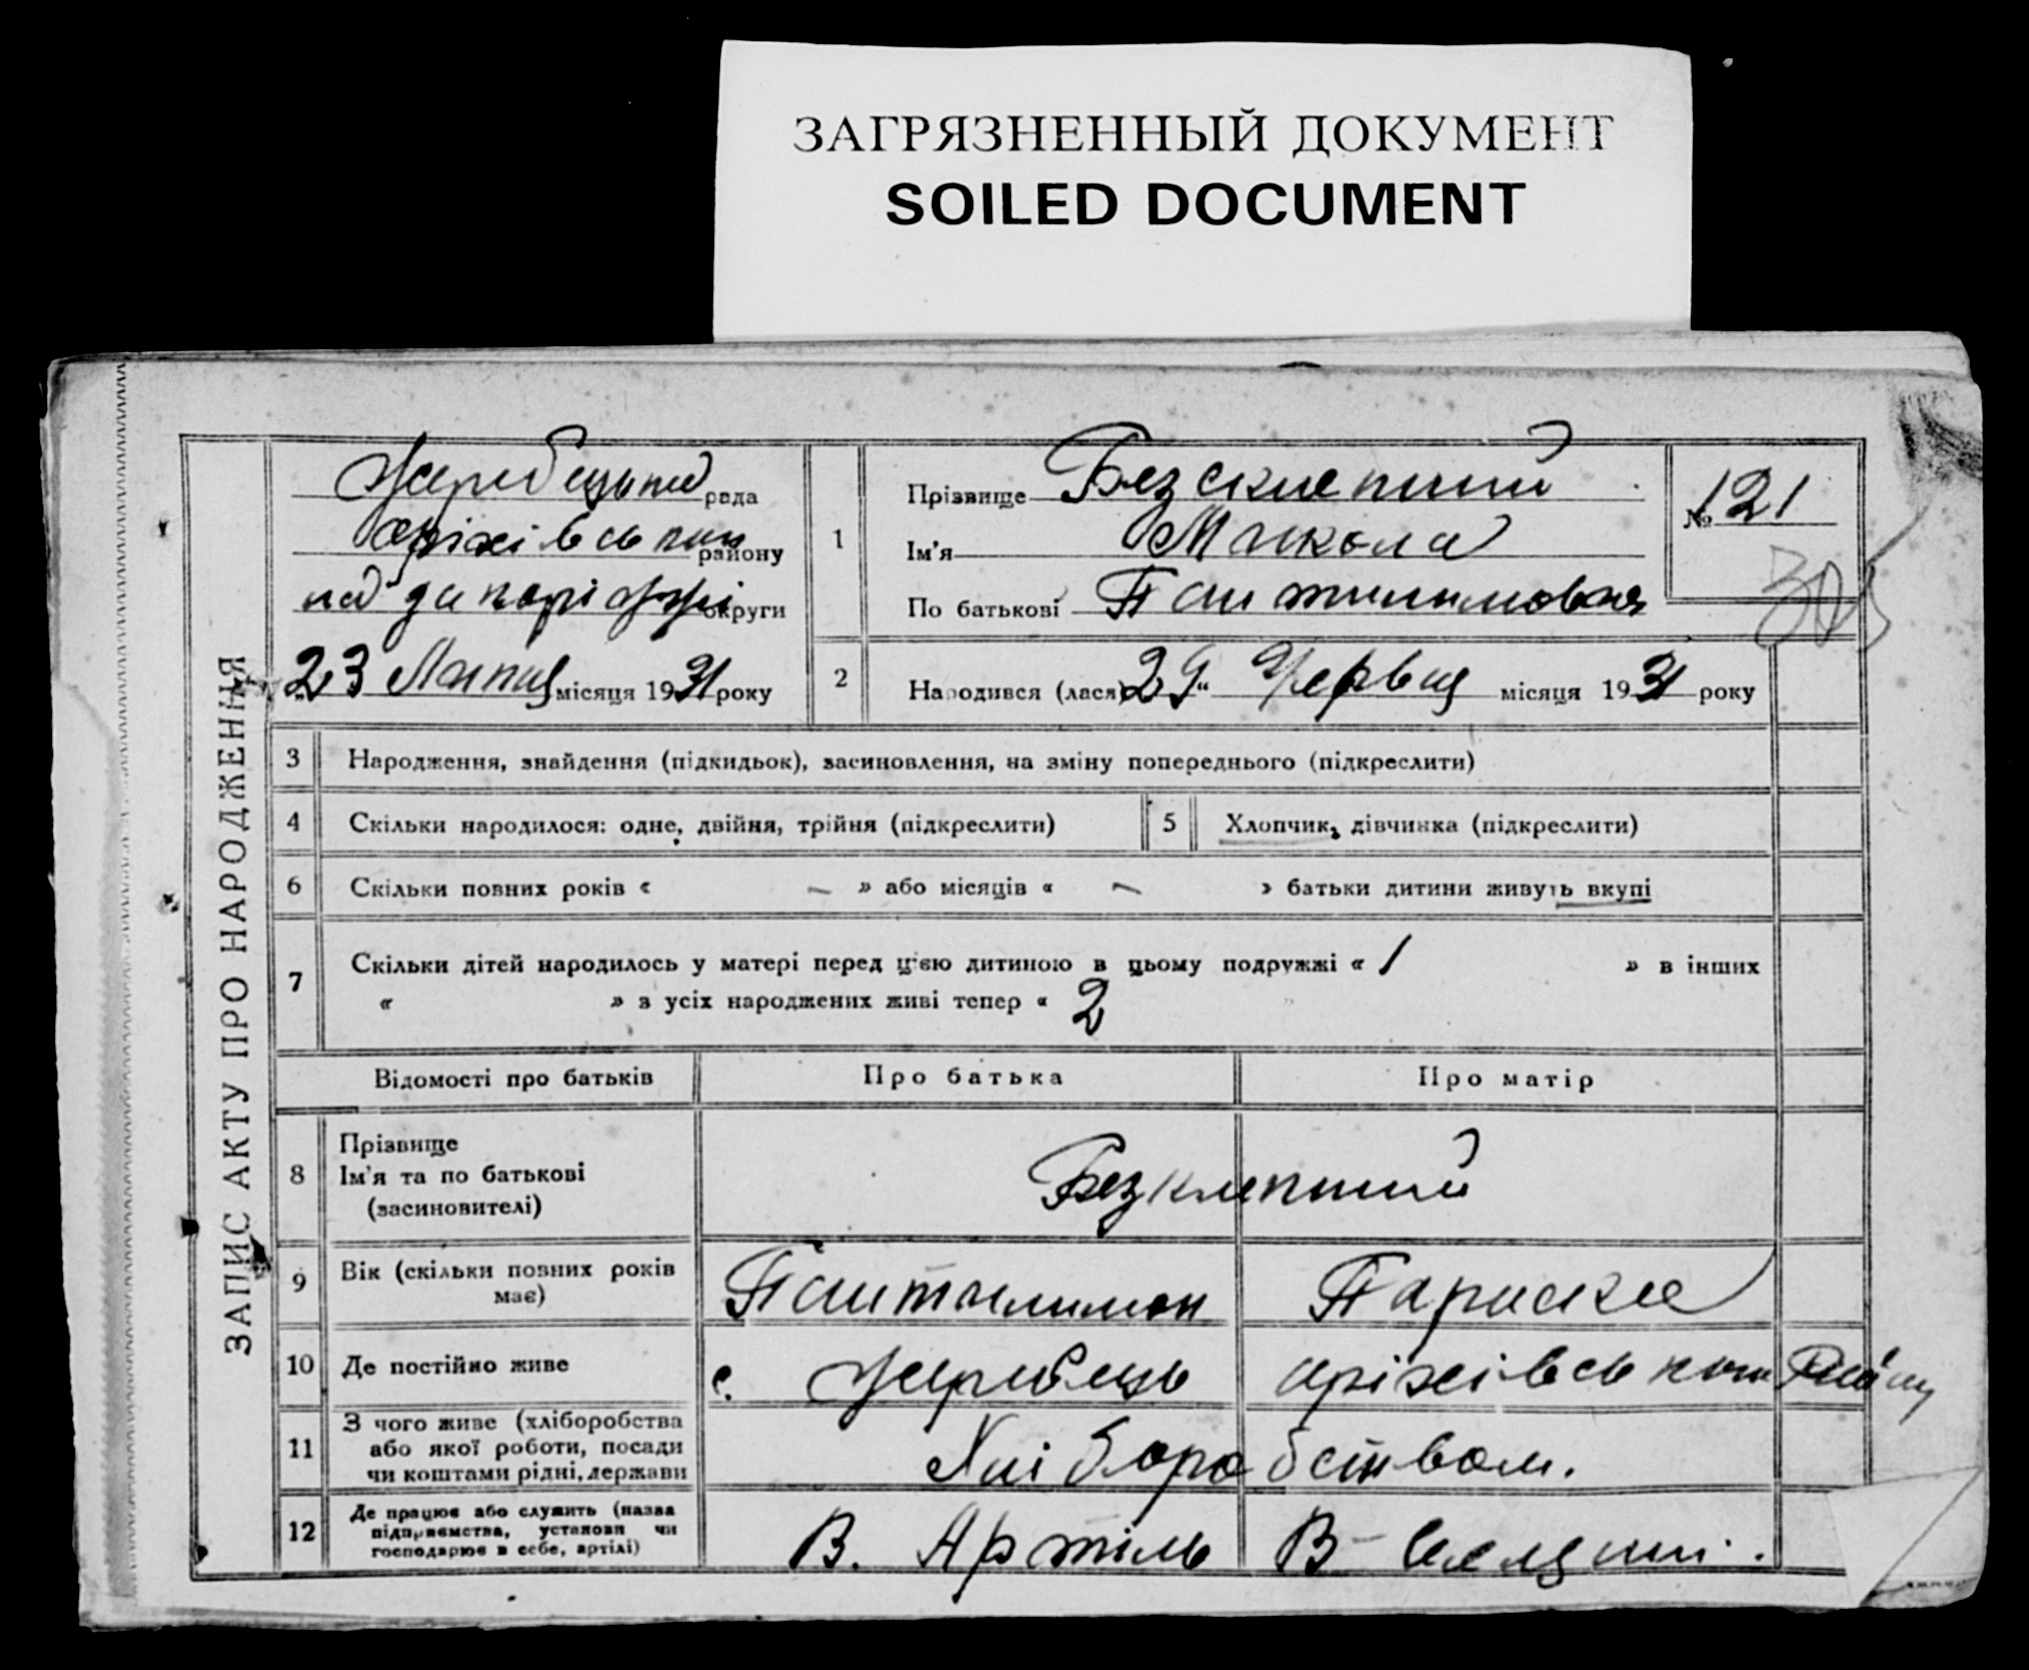 ЗАГРЯЗНЕННЫЙ ДОКУМЕНТ
SOILED DOCUMENT
ЗАПИС АКТУ ПРО НАРОДЖЕННЯ
рада
району
округи
23 Липня місяця 1931 року
1
Прізвище
Ім'я Микола
По батькові
№ 121
2
Народився (лася) 29 " Червня місяця 1931 року
3 Народження, знайдення (підкидьок), засиновлення, на зміну попереднього (підкреслити)
4 Скільки народилося: одне, двійня, трійня (підкреслити)
5 Хлопчик, дівчинка (підкреслити)
6 Скільки повних років « – » або місяців « – » батьки дитини живуть вкупі
7 Скільки дітей народилось у матері перед цією дитиною в цьому подружжі « 1 » в інших
« » з усіх народжених живі тепер « 2
Відомості про батьків Про батька Про матір
8 Прізвище
Ім'я та по батькові
(засиновителі)
9 Вік (скільки повних років
має)
Пантилимон Париска
10 Де постійно живе с. Жеребець оріхівськ
11 З чого живе (хліборобства
або якої роботи, посади
чи коштами рідні, держави
Хліборобством.
12 Де працює або служить (назва
підприємства, установи чи
господарює в себе, артілі)
В. Артіль В